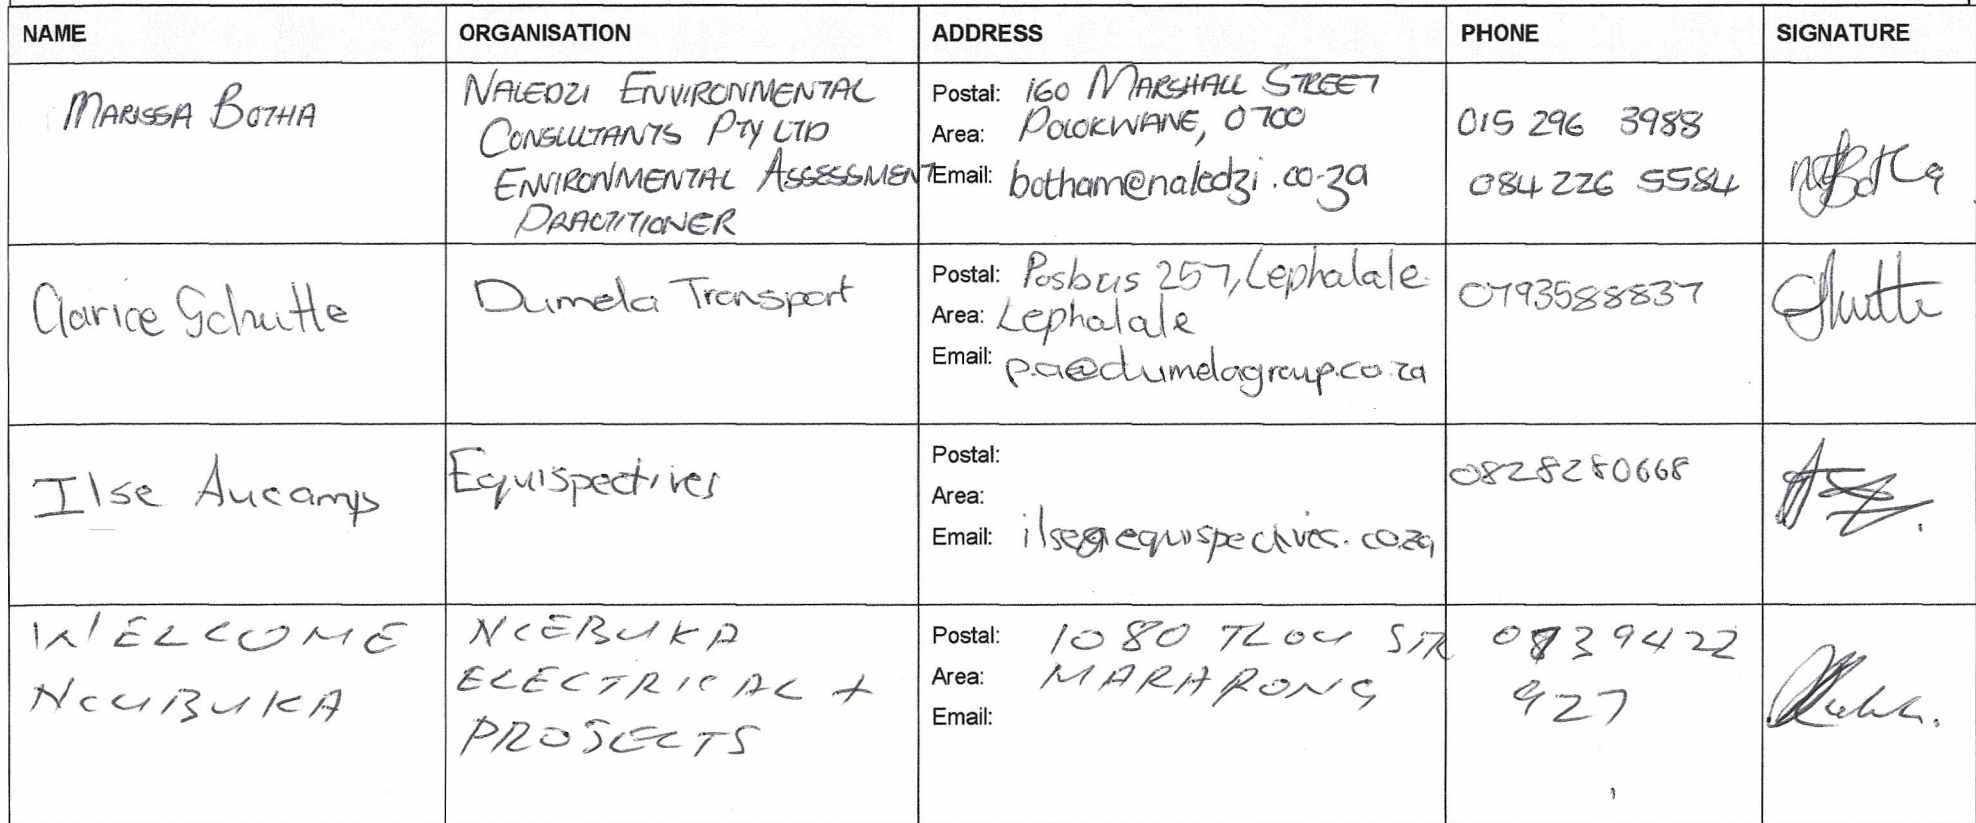 NAME ORGANISATION ADDRESS PHONE SIGNATURE
MARISSA BOTHA
NALEDZI ENVIRONMENTAL
CONSULTANTS PTY LTD
ENVIRONMENTAL ASSESSMENT
PRACTITIONER
Postal: 160 MARSHALL STREET
Area: POLOKWANE, 0700
Email: botham@naledzi.co.za
015 296 3988
084 226 5584
Clarice Schutte
Dumela Transport
Postal: Posbus 257, Lephalale
Area: Lephalale
Email: p.a@dumelagroup.co.za
0793588837
Ilse Aucamp
Equispectives
Postal:
Area:
Email: ilse@equispectives.co.za
0828280668
WELCOME
NCUBUKA
NCEBUKA
ELECTRICAL +
PROJECTS
Postal: 1080 TLOU STR
Area: MARAPONG
Email:
0739422
927